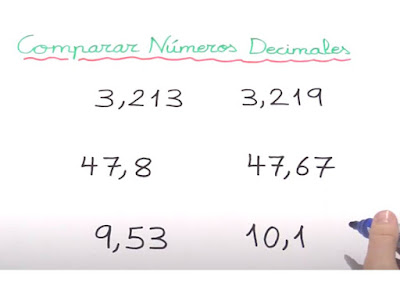 Comparar Números Decimales
3,213 3,219
47,8 47,67
9,53 10,1